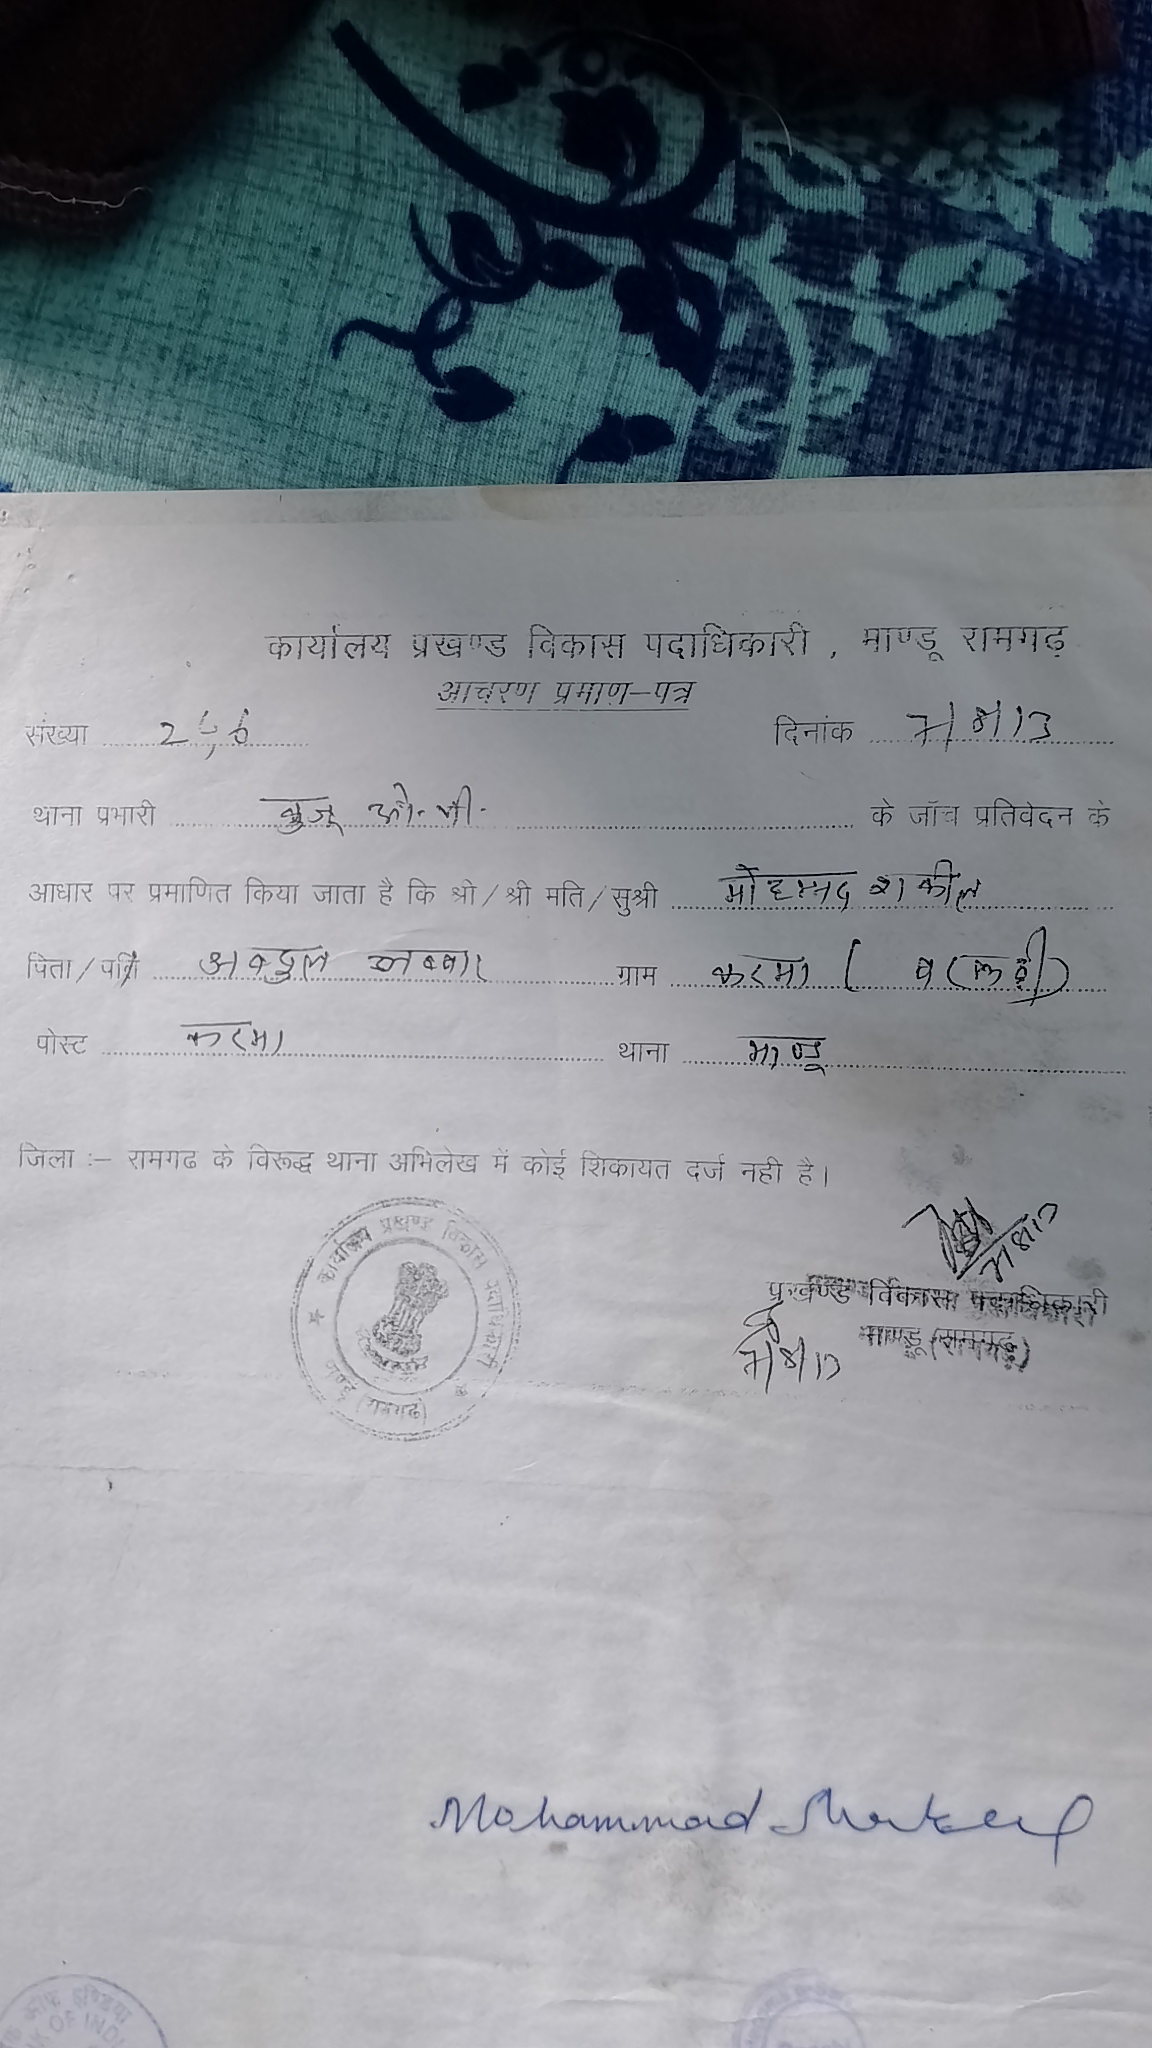 कार्यालय प्रखण्ड विकास पदाधिकारी, माण्डू रामगढ़
आचरण प्रमाण-पत्र
संख्या 256 दिनांक 7/8/13
थाना प्रभारी कुजू ओ.पी. के जॉच प्रतिवेदन के
आधार पर प्रमाणित किया जाता है कि श्री/श्री मति/सुश्री मोहम्मद शकील
पिता/पति अब्दुल जब्बार ग्राम करमा (
पोस्ट करमा थाना माण्डू
जिला :- रामगढ के विरूद्ध थाना अभिलेख में कोई शिकायत दर्ज नही है।
कार्यालय प्रखण्ड विकास पदाधिकारी
माण्डू (रामगढ)
7/8/13
प्रखण्ड विकास पदाधिकारी
माण्डू (रामगढ़)
7/8/13
Mohammad Shakeel